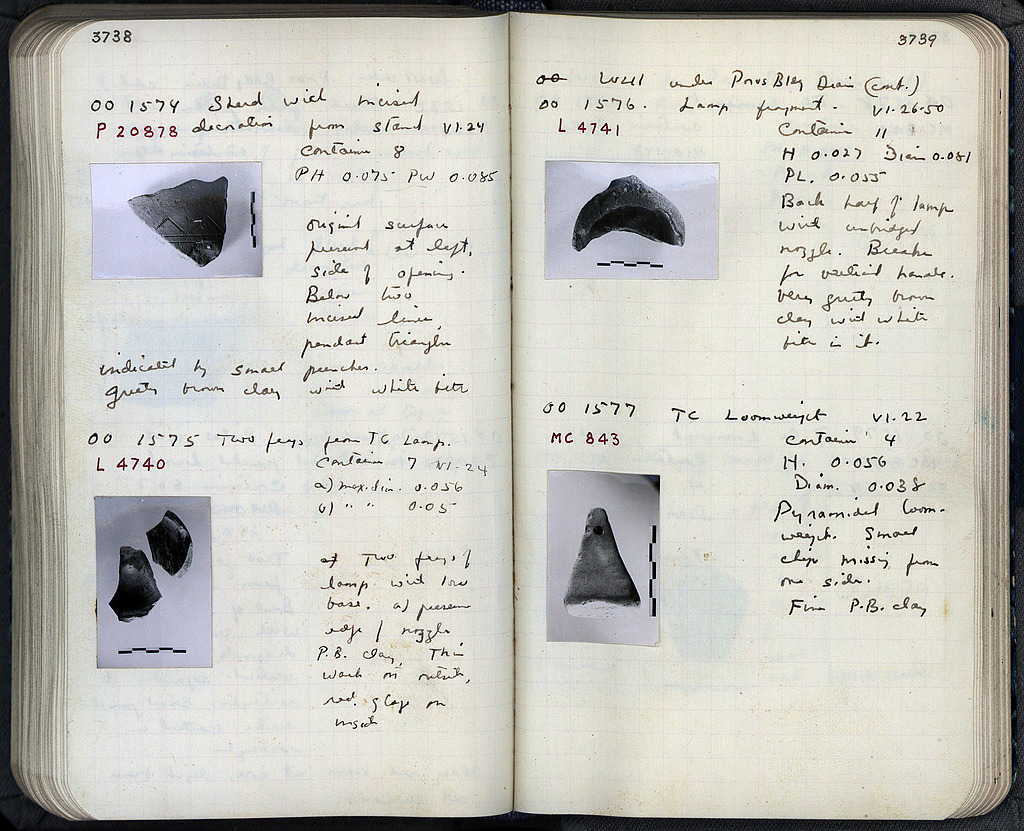 3738
OO 1574 Sherd with incised
P 20878 decoration from stand VI.24
Container 8
PH 0.075 PW 0.085
original surface
preserved at left,
side of opening.
Below two
incised lines,
pendant triangles
indicated by small punches.
gritty brown clay with white bits
OO 1575 Two frags from TC Lamp.
L 4740
Container 7 VI.24
a) max.dim. 0.056
b) " " 0.05
Two frags of
lamp with low
base. a) preserves
edge of nozzle
P.B. clay, Thin
wash on outside,
red glaze on
inside
3739
OO Well under Poros Bldg Drain (cont.)
OO 1576. Lamp fragment. VI-26-50
L 4741
Container 11
H 0.027 Diam 0.081
PL. 0.055
Back half of lamp
with unbridged
nozzle. Breaks
for vertical handle.
Very gritty brown
clay with white
bits in it.
OO 1577 TC Loomweight VI.22
MC 843
Container 4
H. 0.056
Diam. 0.038
Pyramidal loom-
weight. Small
chip missing from
one side.
Fine P.B. clay